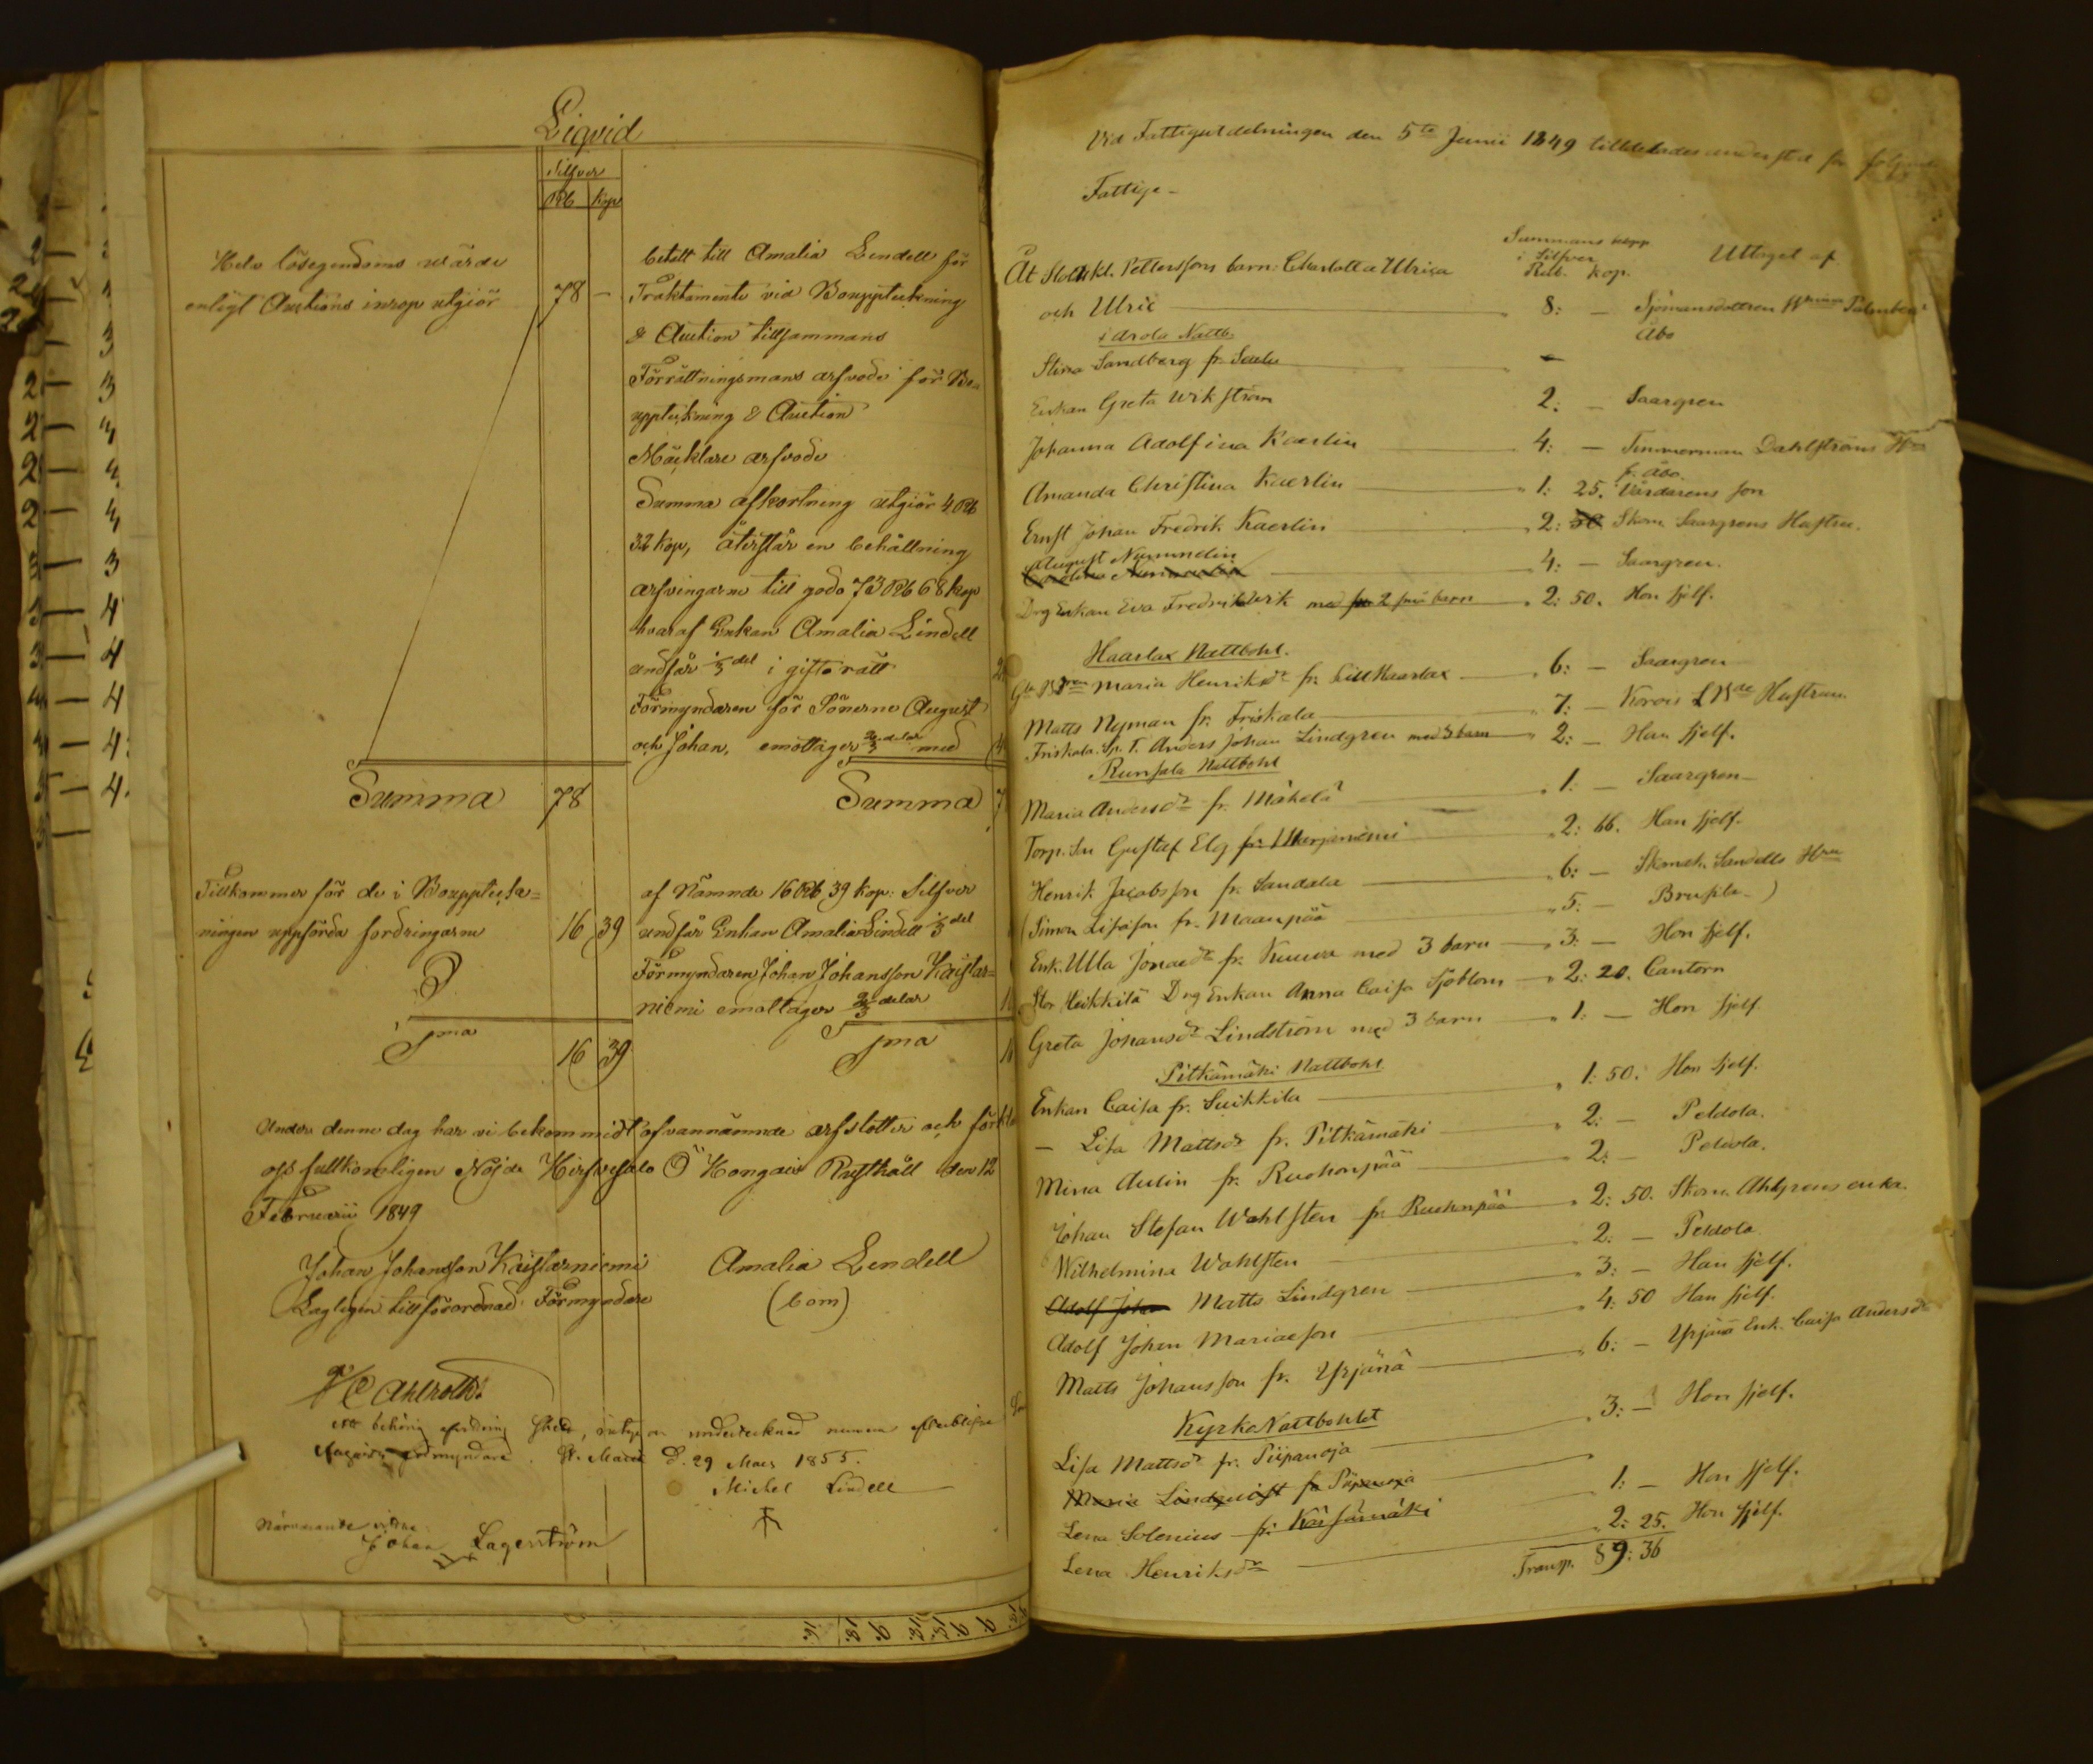 Liqvid
Silfver
Rb Kop
Hela lösegendoms wärde
enligt Auctions inrop utgiör 78 —
betalt till Amalia Lendell för
Traktamente vid Bouppteckning
& Auction tillsammans
Förrättningsmans arfvode för Bo
uppteckning & Auction
Mäcklare arfvode
Summa afkortning utgiör 4 Rb
32 kop, återstår en behållning
arfvingarne till godo 73 Rb 68 kop
hvaraf Enkan Amalia Lindell
undfår 1/3 del i giftorätt
Förmyndaren för Sönerne August
och Johan, emottager 2/3 delar med
Summa 78
Summa 7
Tillkommer för de i Boupptecke=
ningen uppförda fordringarne 16 39
af Nämnde 16 Rb 39 kop: Silfver
undfår Enkan Amalia Lindell 1/3 del
Förmyndaren Johan Johansson Kaislar=
niemi emottager 2/3 delar
Sma 16 39
Sma
Under denne dag har vi bekommidt ofvannämnde arfslotter och för
oss fullkomligen Nöjda Hirsvesalo Ö Kongais Rusthåll den 12
Februarii 1849
Johan Johansson Kaislarniemi
Lagligen tillförordnad Förmyndare
Amalia Lendell
(bom)
Ahlroth
Att behörig skett, undertecknad
förmyndare. St. Marie d. 29 Mars 1855.
Michel Lindell
Närvarande vittne
Johan Lagerström
Vid Fattigutdelningen den 5te Junii 1849 tilldelades understöd för följande
Fattige -
Summans belopp
i Silfver
Rub. Kop.
Uttaget af
Åt Petterssons barn: Charlotta Ulrica
och Ulric 8: — Sjömansdottren Palmberg
Åbo
i Arola Nattb.
Stina Sandberg fr. —
Enkan Greta Wikström 2: — Saargren
Johanna Adolfina Kaerlin 4: — Timmerman Dahlströms Hru
fr. Åbo.
Amanda Christina Kaerlin 1: 25. Vårdarens son
Ernst Johan Fredrik Kaerlin 2: 50 Skom. Saargrens Hustru.
August Nummelin
Carolina Nummelin 4: — Saargren.
Drg Enkan Eva Fredrika Wik med 2 små barn 2: 50. Hon sjelf.
Haarlax Nattbohl.
Maria Henriksdr fr. Lill Haarlax 6: — Saargren
Matts Nyman fr. Friskala 7: — Korois Hustrun.
Friskala. Sp. T. Anders Johan Lindgren med 3 barn 2: — Han sjelf.
Runsala Nattbohl
Maria Andersdr fr. Mäkelä 1: — Saargren
Torp. Sn Gustaf Elg fr. Marjaniemi 2: 66. Han sjelf.
Henrik Jacobsson fr. Sandala 6: — Sandells Hru
(Simon Lisasson fr. Maanpää 5: — Brusila )
Enk. Ulla Jonaedr fr. Kuuva med 3 barn 3: — Hon sjelf.
Stor Heikkilä Drg Enkan Anna Caisa Sjöblom 2: 20. Cantorn
Greta Johansdr Lindström med 3 barn 1: — Hon sjelf
Pitkämäki Nattbohl
Enkan Caisa fr. Suikkila 1: 50. Hon sjelf.
— Lisa Mattsdr fr. Pitkämäki 2: — Peldola.
Mina Aulin fr. Ruohonpää 2: — Peldola.
Johan Stefan Wahlsten fr. Ruohonpää 2: 50. Skom. Ahlgrens enka.
Wilhelmina Wahlsten 2: — Peldola
Adolf Johan Matts Lindgren 3: — Han sjelf.
Adolf Johan Mariaeson 4: 50 Han sjelf.
Matts Johansson fr. Yrjänä 6: — Yrjänä Enk. Caisa Andersdr
Kyrko Nattbohlet
Lisa Mattsdr fr. Piipanoja 3: — Hon sjelf.
Maria Lindqvist fr Piipanoja
Lena Solenius fr. Kärsämäki 1: — Hon sjelf.
Lena Henriksdr 2: 25. Hon sjelf.
Transp. 89: 36